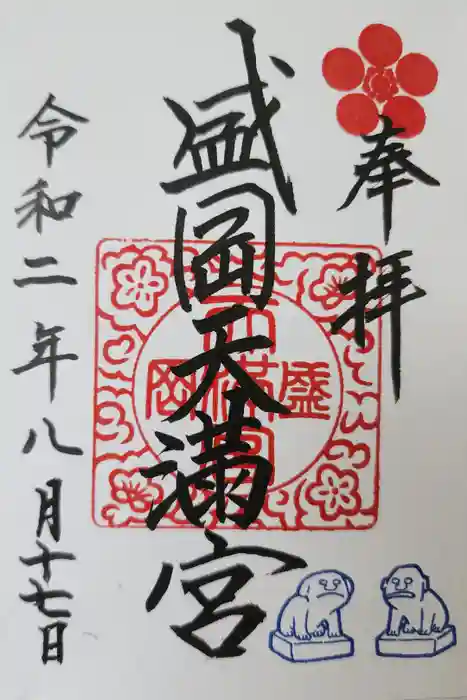 奉拝
盛岡天満宮
盛岡天満宮
令和二年八月十七日